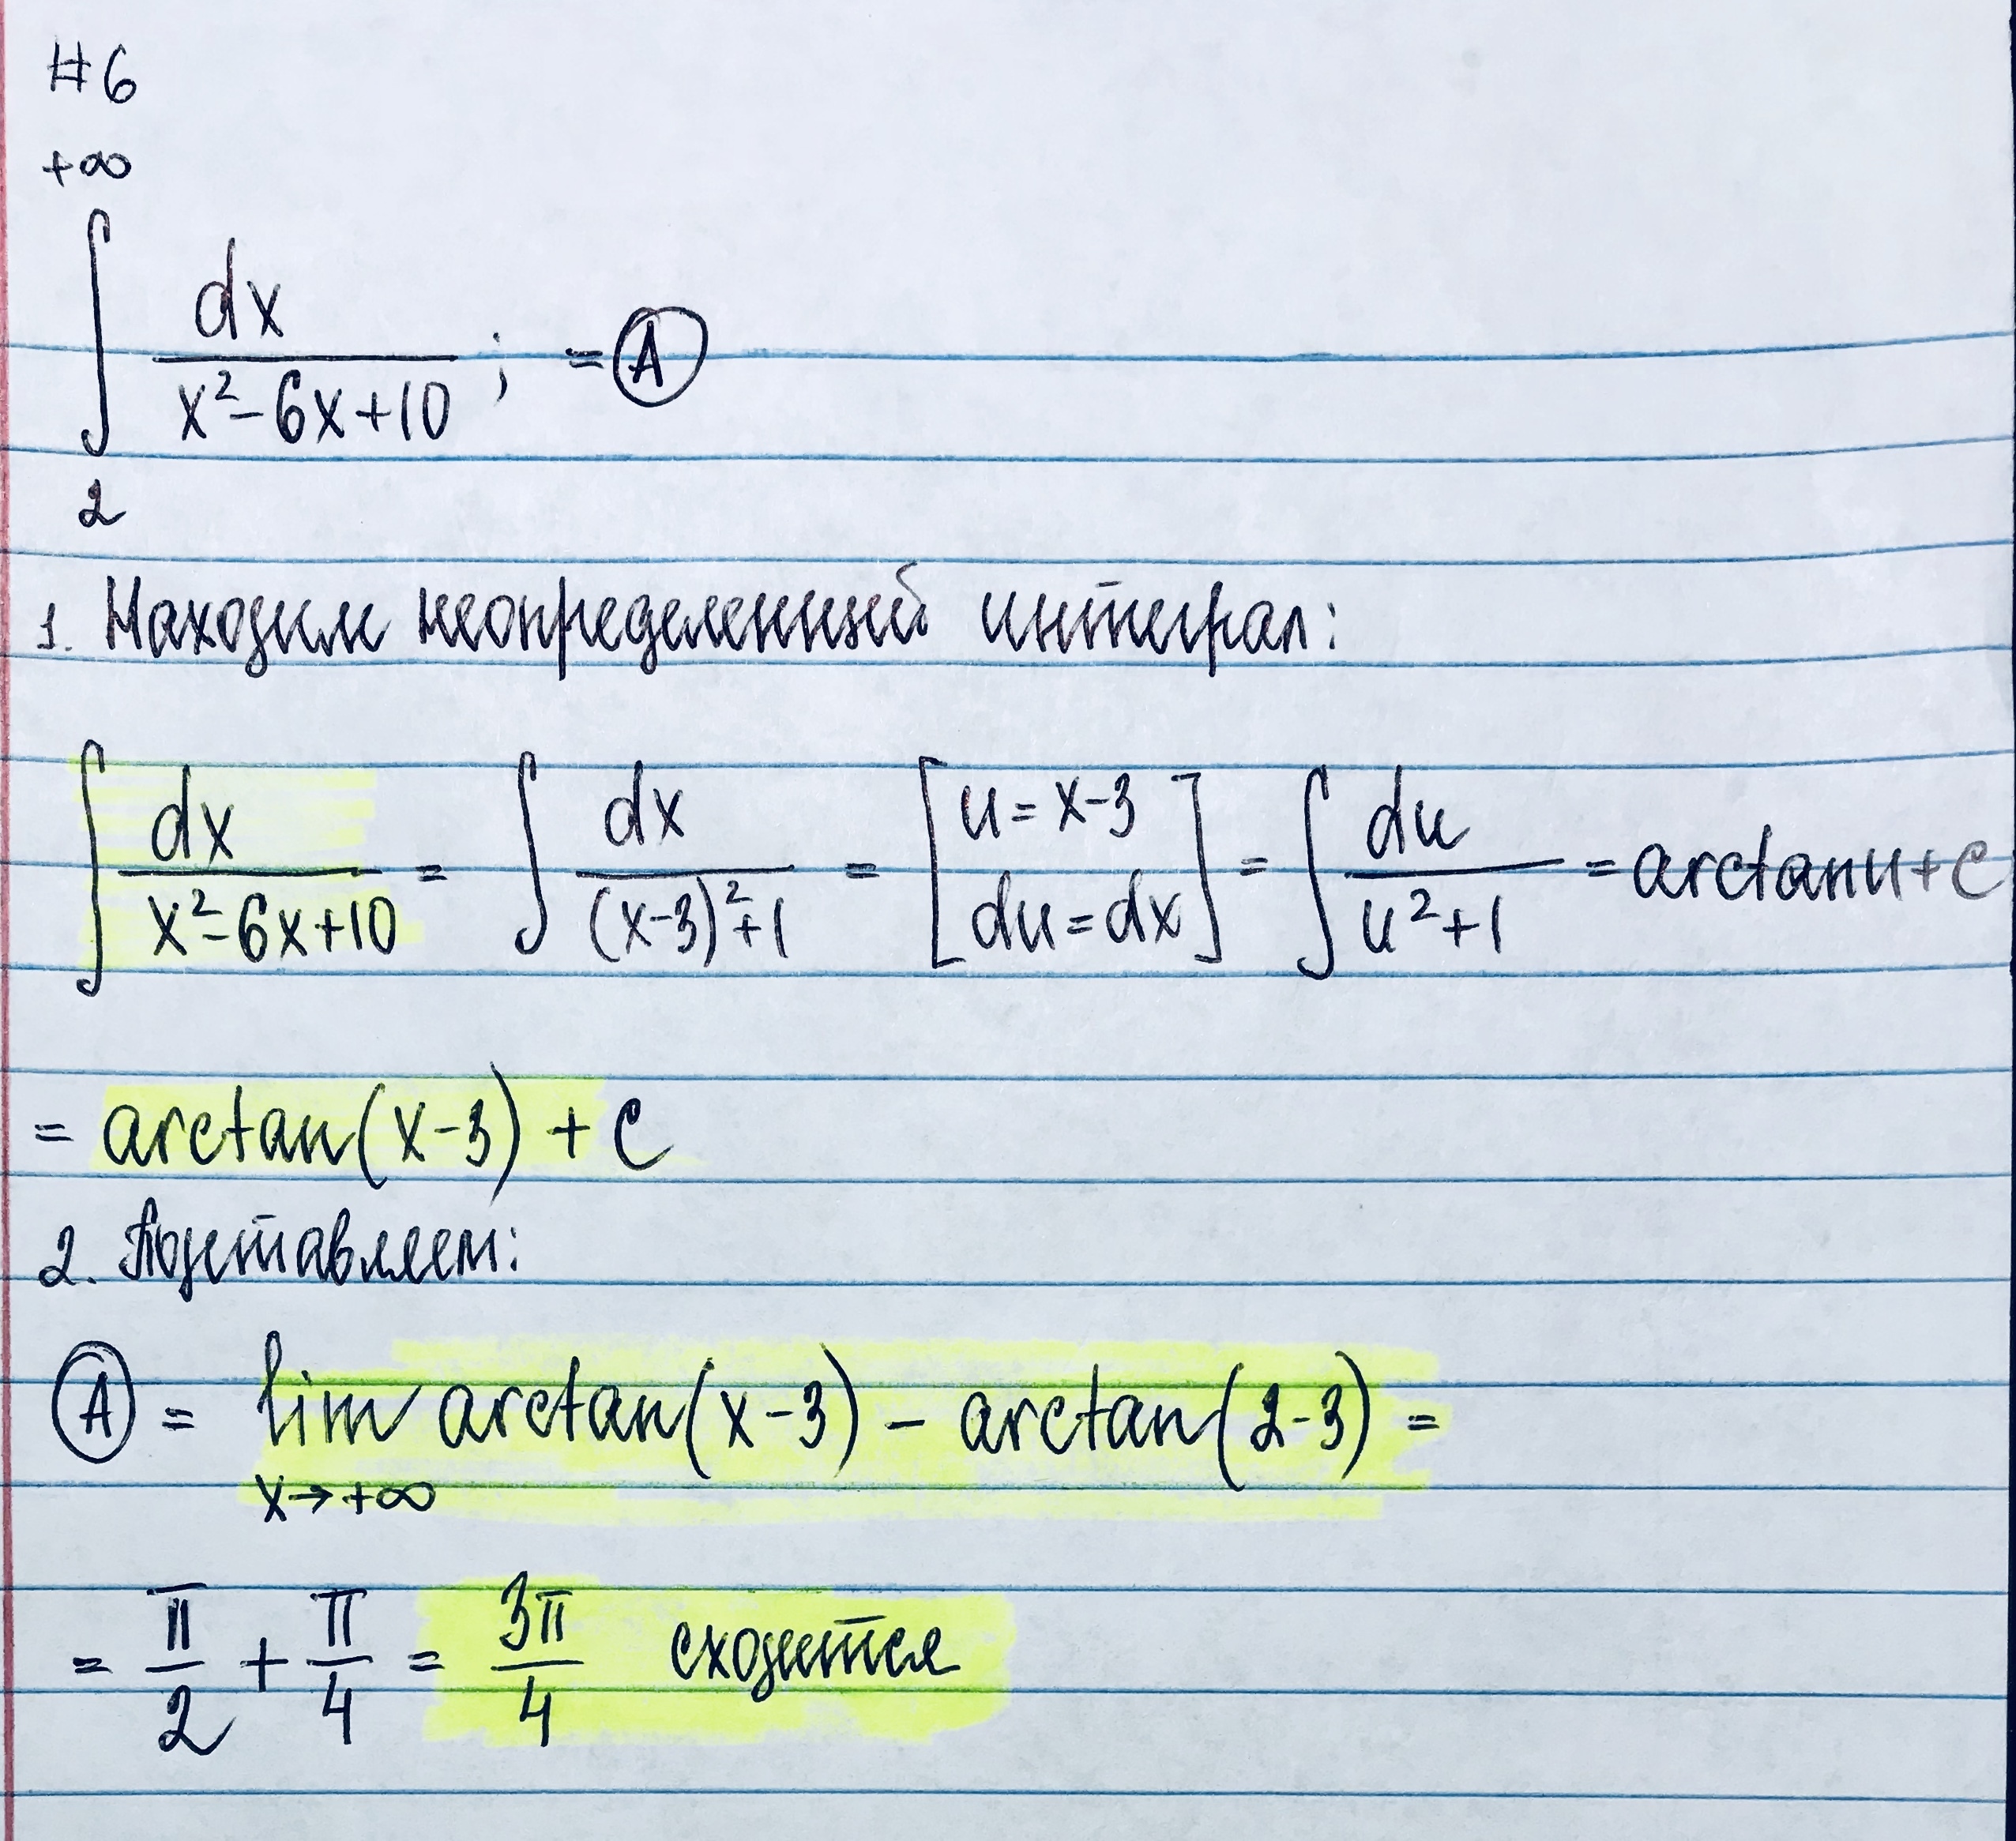 #6
+∞
∫ dx / (x² - 6x + 10) ; = Ⓐ
2
1. Находим неопределенный интеграл:
∫ dx / (x² - 6x + 10) = ∫ dx / ((x-3)² + 1) = [u = x-3 du = dx] = ∫ du / (u² + 1) = arctan u + C
= arctan(x-3) + C
2. Подставляем:
Ⓐ = lim x→+∞ arctan(x-3) - arctan(2-3) =
= π/2 + π/4 = 3π/4 сходится